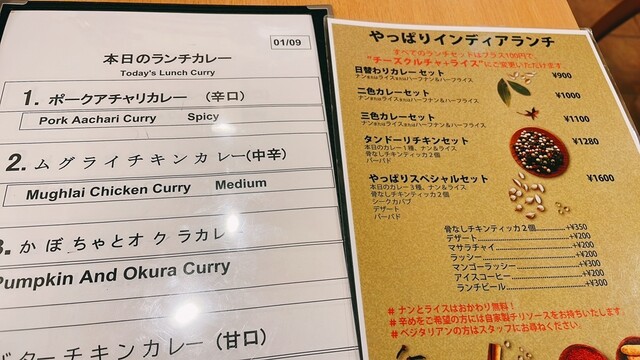 01/09
本日のランチカレー
Today's Lunch Curry
1. ポークアチャリカレー (辛口)
Pork Aachari Curry Spicy
2. ムグライチキンカレー(中辛)
Mughlai Chicken Curry Medium
3. かぼちゃとオクラカレー
Pumpkin And Okura Curry
バターチキンカレー (甘口)
やっぱりインディアランチ
すべてのランチセットはプラス100円で、
"チーズクルチャ+ライス"にご変更いただけます
日替わりカレーセット ¥900
ナンまたはライスまたはハーフナン&ハーフライス
二色カレーセット ¥1000
ナンまたはライスまたはハーフナン&ハーフライス
三色カレーセット ¥1100
ナンまたはライスまたはハーフナン&ハーフライス
タンドーリチキンセット ¥1280
本日のカレー1種、ナン&ライス
骨なしチキンティッカ2個
パーパド
やっぱりスペシャルセット ¥1600
本日のカレー3種、ナン&ライス
骨なしチキンティッカ2個
シークカバブ
デザート
パーパド
骨なしチキンティッカ2個..........+¥350
デザート..........+¥200
マサラチャイ..........+¥200
ラッシー..........+¥200
マンゴーラッシー..........+¥300
アイスコーヒー..........+¥200
ランチビール..........+¥300
# ナンとライスはおかわり無料!
# 辛めをご希望の方には自家製チリソースをお持ちいたします
# ベジタリアンの方はスタッフにお尋ねください。